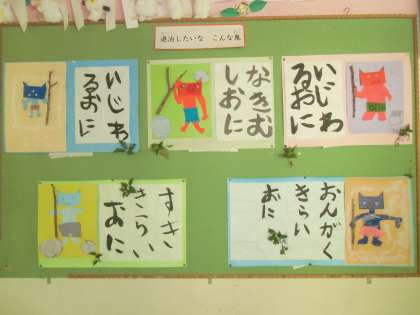 退治したいな こんな鬼
いじわ
るおに
なきむ
しおに
いじわ
るおに
おんがく
きらい
おに
すき
きらい
おに